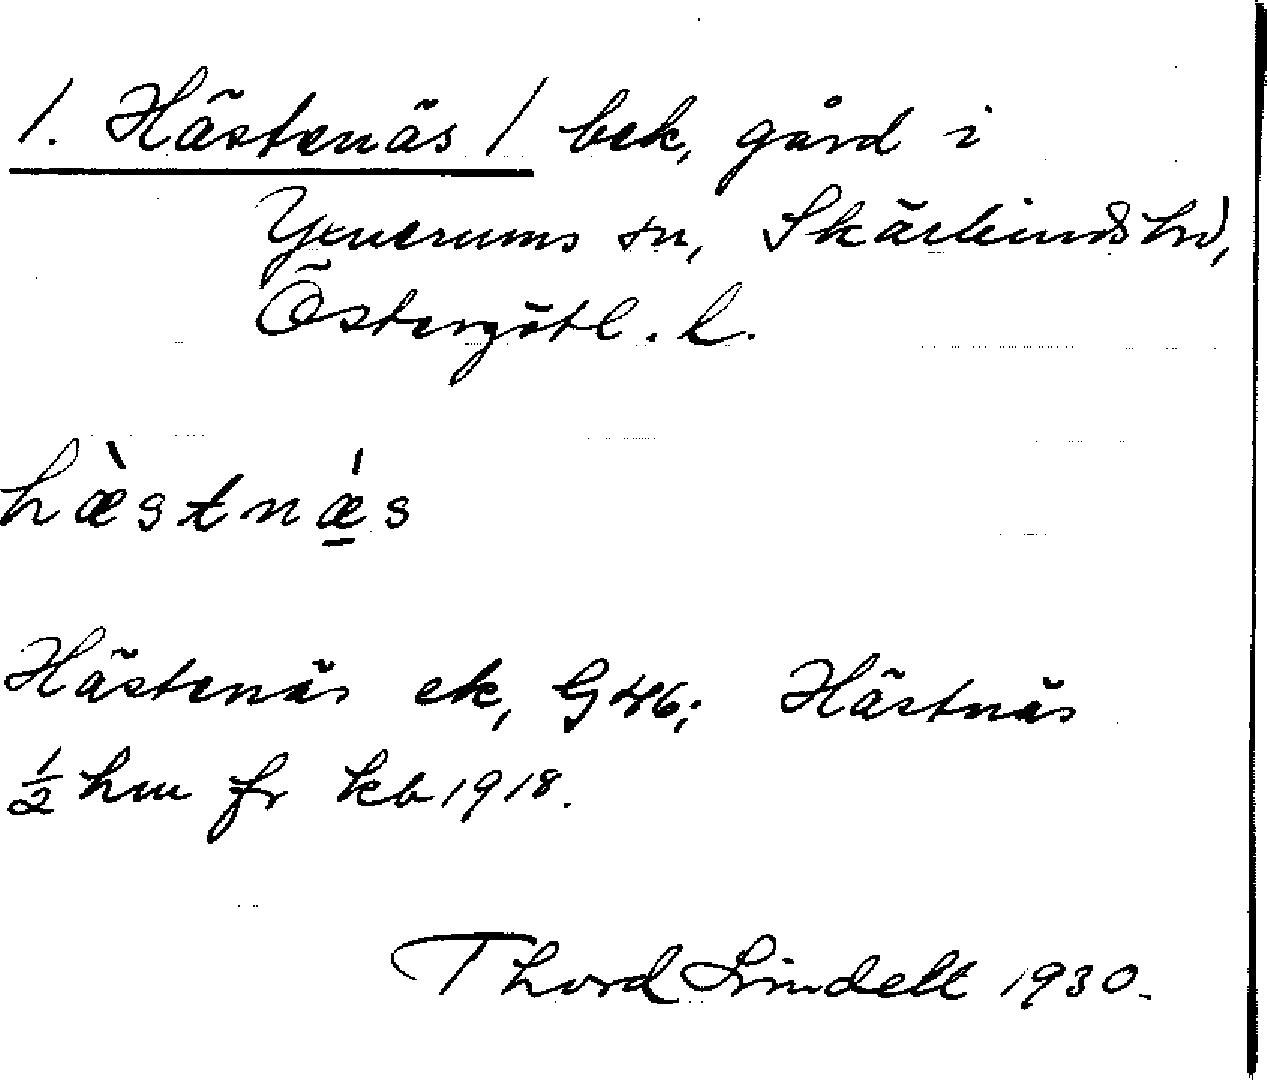 1. Hästenäs / bek, gård i
Yxnerums sn, Skärkinds hd,
Östergötl. l.
hæ̀stnǽ̱s
Hästenäs ek, G 46; Hästnäs
½ hm fr kb 1918.
Thord Lindelt 1930.